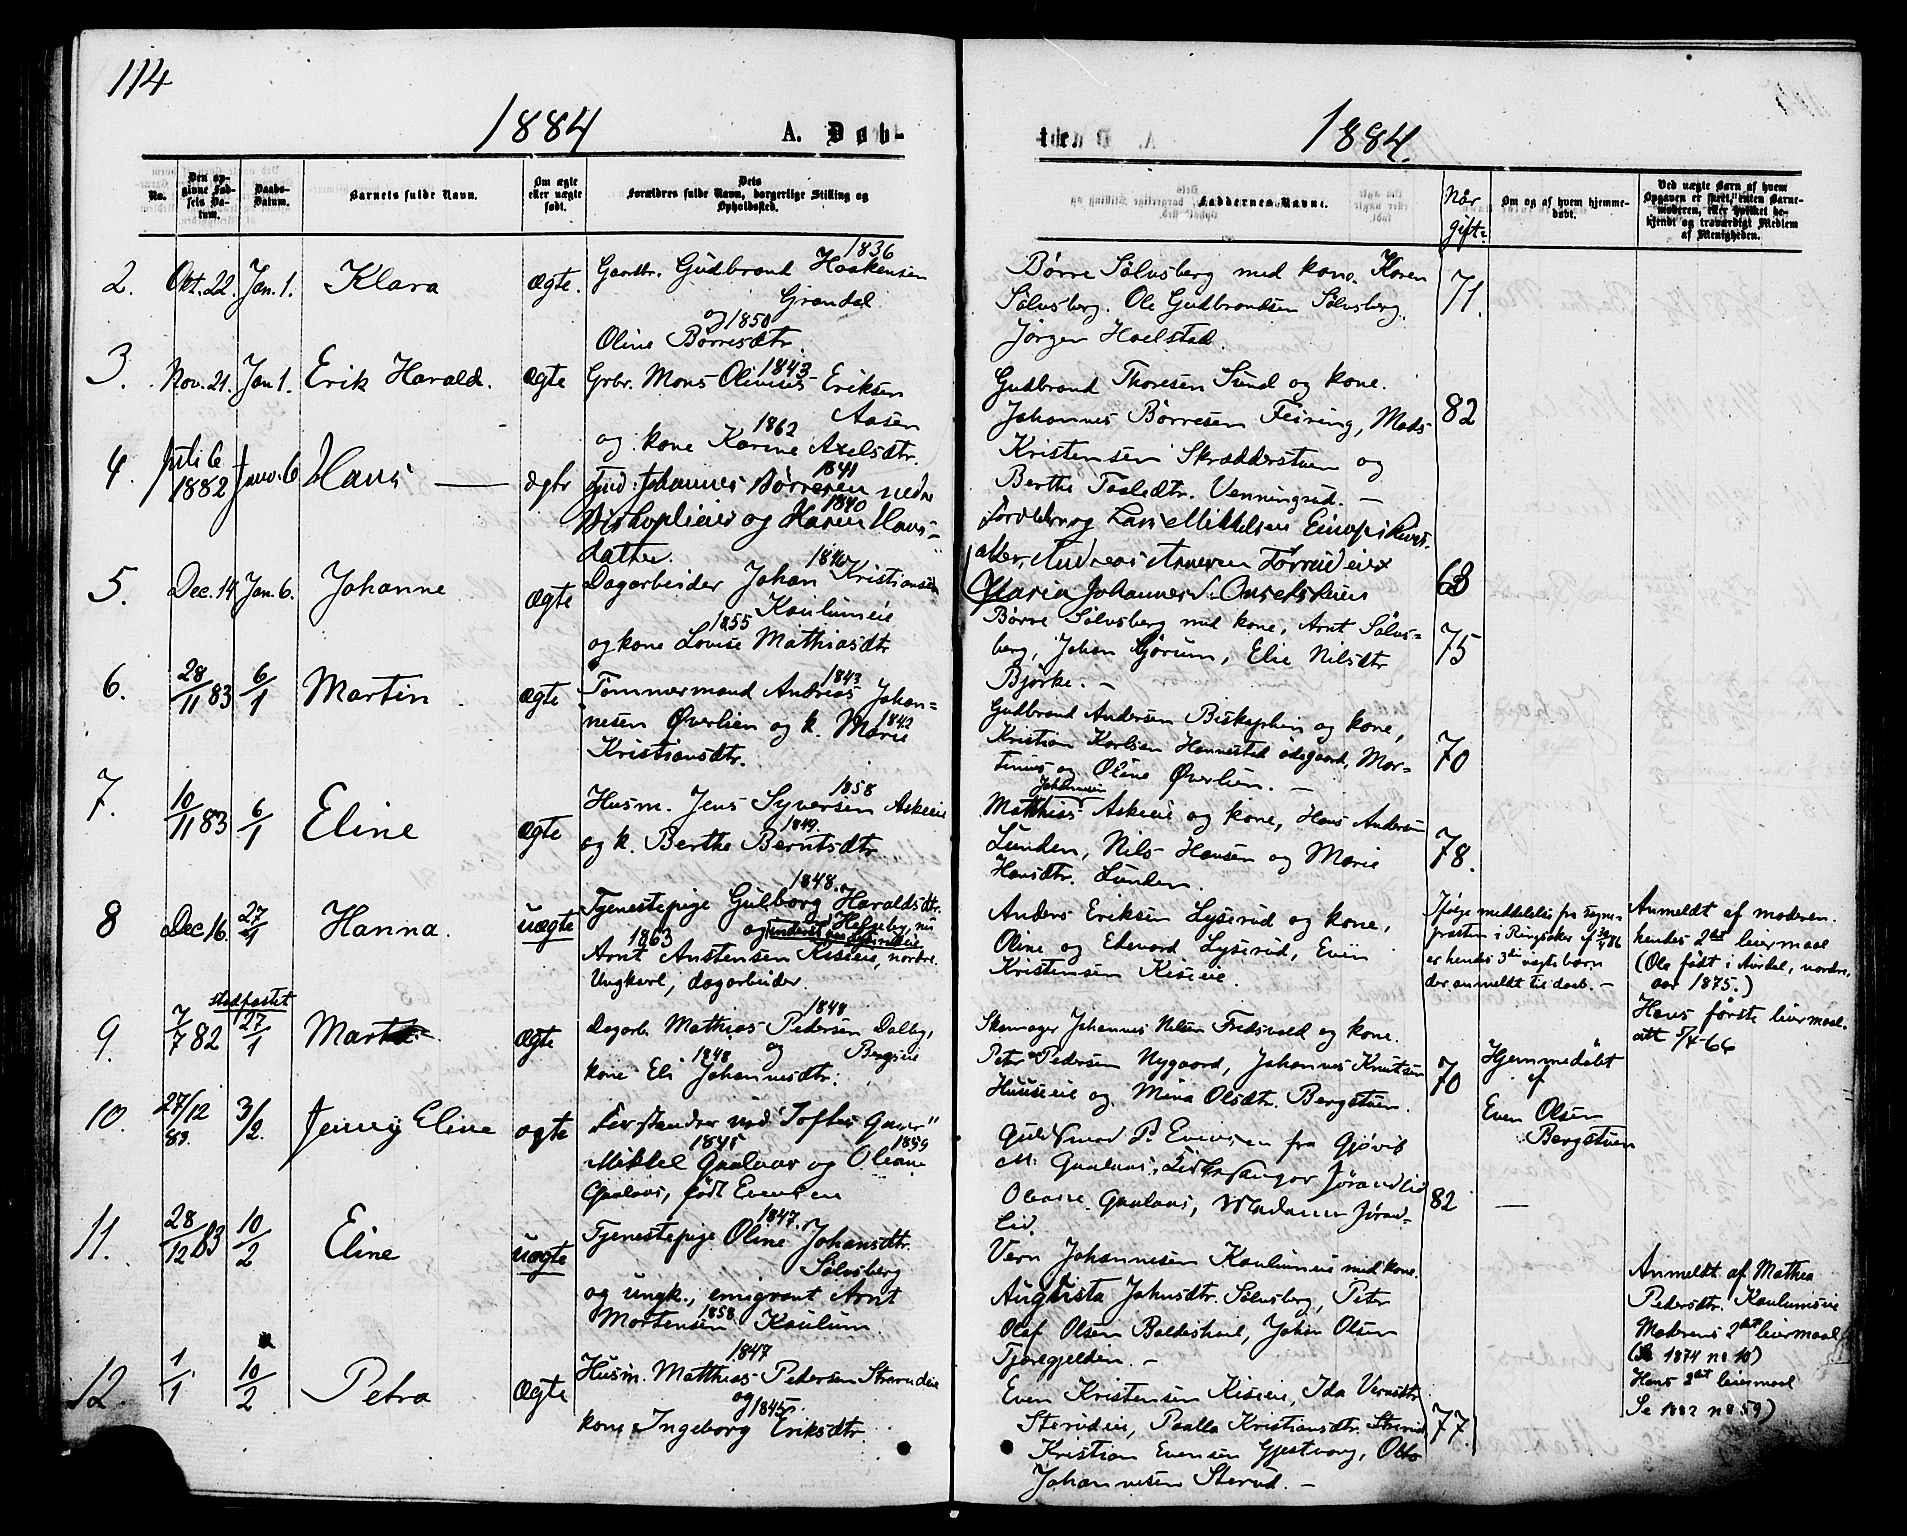 114
1884
A. Døb-
No.
Den op-
givne Fød-
sels Da-
tum.
Daabs-
Datum.
Barnets fulde Navn.
Om ægte
eller uægte
født.
Dets
Forældres fulde Navn, borgerlige Stilling og
Opholdssted.
2. Okt. 22. Jan. 1. Klara ægte.
Gaardbr. Gudbrand Haakensen 1836
Grøndal
og 1850
Oline Børresdtr.
3. Nov. 21. Jan 1. Erik Harald. ægte
Grbr. Mons Olinius Eriksen 1843
Aasen
og kone Karine Axelsdtr. 1862
4. Juli 6 1882 Janv. 6 Hans ægte
Ind: Johannes Børresen nedre 1841
Biskoplieie og Karen Hans- 1840
datter.
5. Dec. 14 Jan. 6. Johanne ægte
Dagarbeider Johan Kristiansen 1840
Kaulumeie
og kone Lovise Mathiasdtr 1855
6. 28/11 83 6/1 Martin ægte
Tømmermand Andreas Johan- 1843
nesen Øverlien og k. Marie 1842
Kristiansdtr.
7. 10/11 83 6/1 Eline ægte
Husm. Jens Syversen Askeeie 1858
og k. Berthe Berntsdtr 1849.
8 Dec 16. 27/1 Hanna. uægte
Tjenestepige Gulborg Haraldsdtr. 1848.
og Helseby, nu
1863
Arnt Anstensen Kiseeie, nordre.
Ungkarl, dagarbeider.
9. 7/7 82 stadfæstet 27/1 ægte
Dagarb. Mathias Pedersen Dalby, 1848
og Bergseie
kone Eli Johannesdtr. 1848
10. 27/12 83. 3/2. Jenny Eline ægte
Forstander ved Toftes Gave"
Mikkel Gaalaas og Oleane 1845 1859
Gaalaas, født Evensen
11. 28/12 83 10/2 Eline uægte
Tjenestepige Oline Johansdtr. 1847.
Sølvsberg
og ungk., emigrant Arnt
Mortensen Kaulum. 1858
12. 1/1 10/2 Petra ægte
Husm. Matthias Pedersen 1847
og 1845
kone Ingeborg Eriksdtr.
1884.
Faddernes Navne.
Når
gift?
Om og af hvem hjemme-
døbt.
Ved uægte Barn af hvem
Opgaven er skeet, enten Barne-
moderen, eller hvilket be-
kjendt og troværdigt Medlem
af Menigheden.
Børre Sølvsberg med kone. Karen
Sølvsberg. Ole Gudbrandsen Sølvsberg. 71.
Jørgen Hoelstad.
Gudbrand Thoresen Sund og kone.
Johannes Børresen Feiring, Mads 82
Kristensen Skrædderstuen og
Berthe Paalsdtr. Venningrud. —
Forældre og Lars Mikkelsen
Andreas Arnesen Forrudeie
Maria Johannesd. 68
Børre Sølvsberg med kone, Arnt Sølvs-
berg, Johan Gjørum, Elie Nilsdtr 75
Bjørke. —
Gudbrand Andersen Biskoplien og kone,
Kristian Karlsen Hennestad ødegaard, Mar- 70
tinus og Oline Øverlien. —
Johannesen
Matthias Askeeie og kone, Hans Andersen
Lunden, Nils Hansen og Marie 78.
Hansdtr. Lunden.
Anders Eriksen Lyserud og kone,
Oline og Edevard Lyserud, Even
Kristensen Kiseeie.
Ifølge meddelelse fra sogne-
presten i Ringsaker af 30/5 86
er hendes 3die uægte barn
der anmeldt til daab. —
Anmeldt af moderen.
hendes 2det leiermaal
(Ole født i Aurdal, nordre,
aar 1875.)
Hans første leiermaal.
att 5/4-66
Skomager Johannes Nilsen Fredsvold og kone.
Peter Pedersen Nygaard, Johannes Knutsen 70
Huuseeie og Mina Olsdtr. Bergstuen.
Hjemmedøbt
af
Even Olsen
Bergstuen
Guldsmed P. Evensen fra Gjøvik
M. Gaalaas, Kirkesanger Jørandlid
Oleane Gaalaas, Madame Jørand- 82 —
lid.
Vern Johannesen Kaulumeie med kone.
Augusta Johnsdtr. Sølvsberg, Peter
Olaf Olsen Baldishoel, Johan Olsen
Tjernsgjelden. —
Anmeldt af Mathea
Pedersdtr. Kaulumseie
Moderens 2det leiermaal
(Se 1874 no 10)
Hans 2det leiermaal
Se 1882 no 59)
Even Kristensen Kiseeie, Ida Vernsdtr
Sterudeie, Paalla Kristiansdtr. Sterud 77.
Kristian Evensen Gjestvang, Otto
Johannesen Sterud. —